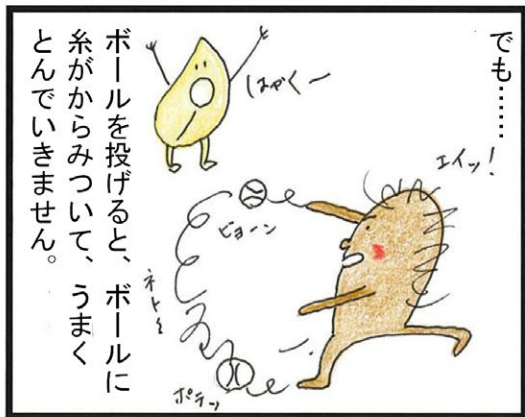 でも……
エイッ！
はやくー
ビョーン
ネト〜
ポテッ
ボールを投げると、ボールに
糸がからみついて、うまく
とんでいきません。